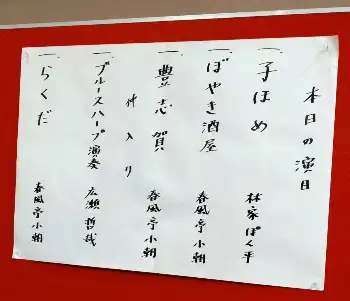 本日の演目
一、子ほめ 林家ぽん平
一、ぼやき酒屋 春風亭小朝
一、豊志賀 春風亭小朝
仲入り
一、ブルースハープ演奏 広瀬哲哉
一、らくだ 春風亭小朝